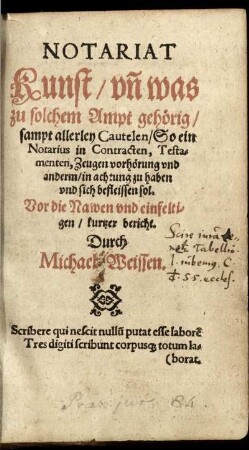 NOTARIAT
Kunst / vñ was
zu solchem Ampt gehörig /
sampt allerley Cautelen / So ein
Notarius in Contracten, Testa-
menten, Zeugen vorhörung vnd
anderm / in achtung zu haben
vnd sich befleissen sol.
Vor die Nawen vnd einfelti-
gen / kurtzer bericht.
Durch
Michael Weissen.
Scribere qui nescit nullũ putat esse laborẽ
Tres digiti scribunt corpusq; totum la-
(borat.